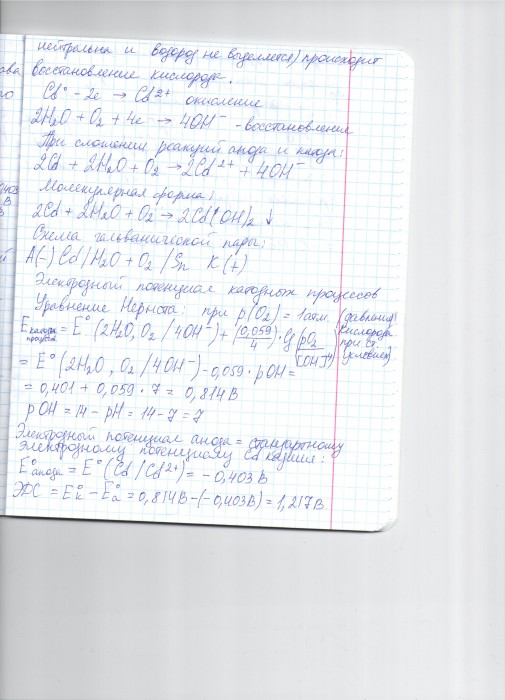 нейтральна и водород не выделяется) происходит
ова восстановление кислорода.
Cd° - 2e → Cd²⁺ окисление
2H₂O + O₂ + 4e → 4OH⁻ - восстановление
При сложении реакций анода и катода:
2Cd + 2H₂O + O₂ → 2Cd²⁺ + 4OH⁻
Молекулярная форма:
2Cd + 2H₂O + O₂ → 2Cd(OH)₂ ↓
Схема гальванической пары:
A(-) Cd / H₂O + O₂ / Sn K(+)
Электродный потенциал катодных процессов
Уравнение Нернста: при p(O₂) = 1 атм. (давлении
E катодн. процесса = E° (2H₂O, O₂ / 4OH⁻) + (0,059/4) · lg (pO₂/[OH⁻]⁴) кислорода при ст. условиях)
= E° (2H₂O, O₂ / 4OH⁻) - 0,059 · pOH =
= 0,401 + 0,059 · 7 = 0,814 В
pOH = 14 - pH = 14 - 7 = 7
Электродный потенциал анода = стандартному
электродному потенциалу Cd кадмия:
E°анода = E° (Cd / Cd²⁺) = - 0,403 В
ЭДС = E°к - E°а = 0,814 В - (- 0,403 В) = 1,217 В